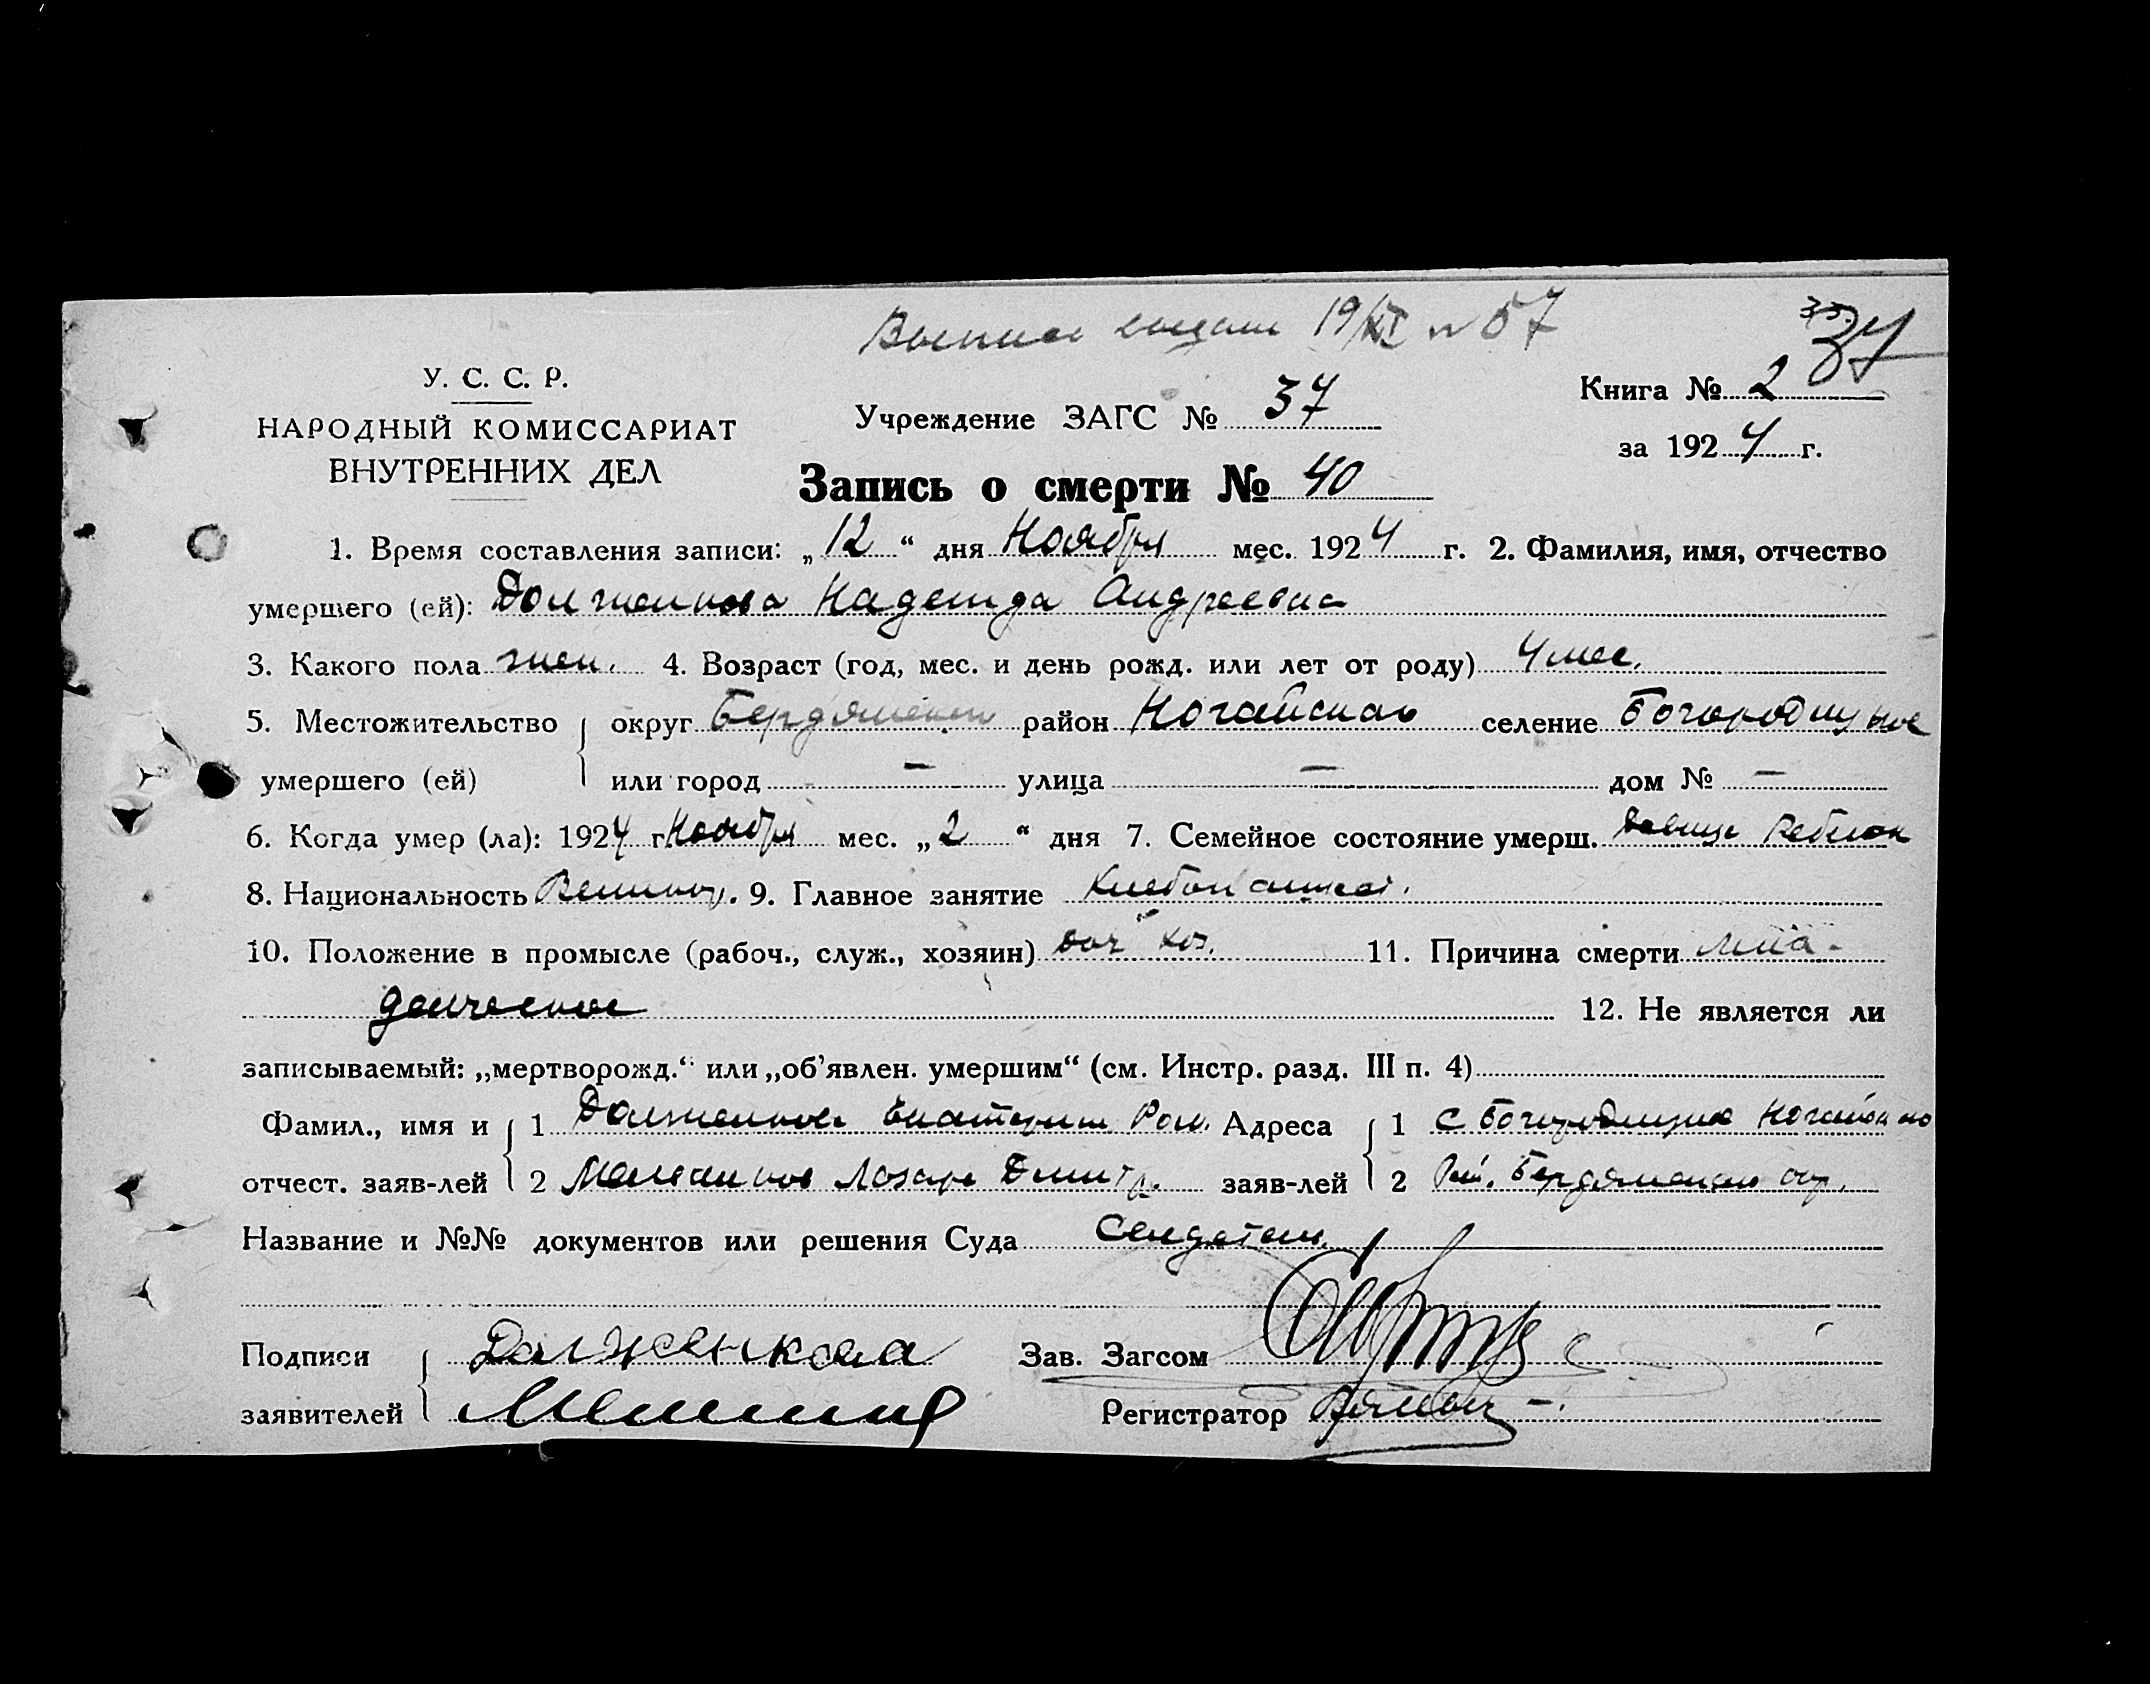 19/XI № 57
37
У. С. С. Р.
НАРОДНЫЙ КОМИССАРИАТ
ВНУТРЕННИХ ДЕЛ
Учреждение ЗАГС № 37
Книга № 2
за 1924 г.
Запись о смерти № 40
1. Время составления записи: „12“ дня Ноября мес. 1924 г. 2. Фамилия, имя, отчество
умершего (ей): Долженкова Надежда Андреевна
3. Какого пола жен. 4. Возраст (год, мес. и день рожд. или лет от роду) 4 мес.
5. Местожительство округ Бердянский район Ногайский селение Богородицкое
умершего (ей) или город — улица — дом № —
6. Когда умер (ла): 1924 г. Ноября мес. „2“ дня 7. Семейное состояние умерш. девица Ребенок
8. Национальность Великор. 9. Главное занятие Хлебопашест.
10. Положение в промысле (рабоч., служ., хозяин) доч хоз. 11. Причина смерти мла-
денческое 12. Не является ли
записываемый: „мертворожд.“ или „об’явлен. умершим“ (см. Инстр. разд. III п. 4)
Фамил., имя и 1 Долженкова Екатерина Ром. Адреса 1 с Богородицкое Ногайск го
отчест. заяв-лей 2 Лазарь Дмитр. заяв-лей 2 Рай. Бердянского окр.
Название и №№ документов или решения Суда
Подписи Долженкова Зав. Загсом
заявителей Регистратор